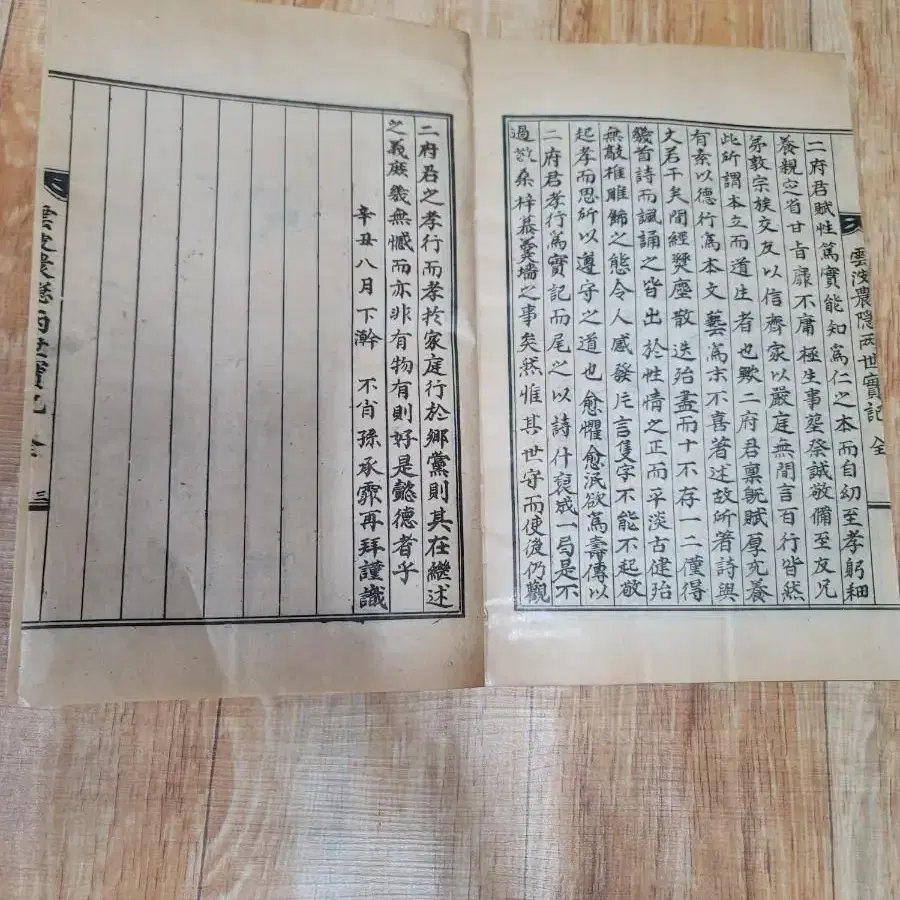 雲汶農隱兩世實記 全
二府君賦性篤實能知爲仁之本而自幼至孝躬細
養親定省甘旨靡不庸極生事葬祭誠敬備至友兄
弟敦宗族交友以信齊家以嚴庭無間言百行皆然
此所謂本立而道生者也歟二府君稟旣賦厚充養
有素以德行爲本文藝爲末不喜著述故所著詩與
文若干矣間經燹塵散迭殆盡而十不存一二僅得
幾首詩而諷誦之皆出於性情之正而平淡古健殆
無敲椎雕鎪之態令人感發片言隻字不能不起敬
起孝而思所以遵守之道也愈懼愈泯欲爲壽傳以
二府君孝行爲實記而尾之以詩什裒成一局是不
過敬桑梓慕羹墻之事矣然惟其世守而使後仍觀
二府君之孝行而孝於家庭行於鄉黨則其在繼述
之義庶幾無憾而亦非有物有則好是懿德者乎
辛丑八月下澣 不肖孫承霖再拜謹識
雲汶農隱兩世實記 全 三